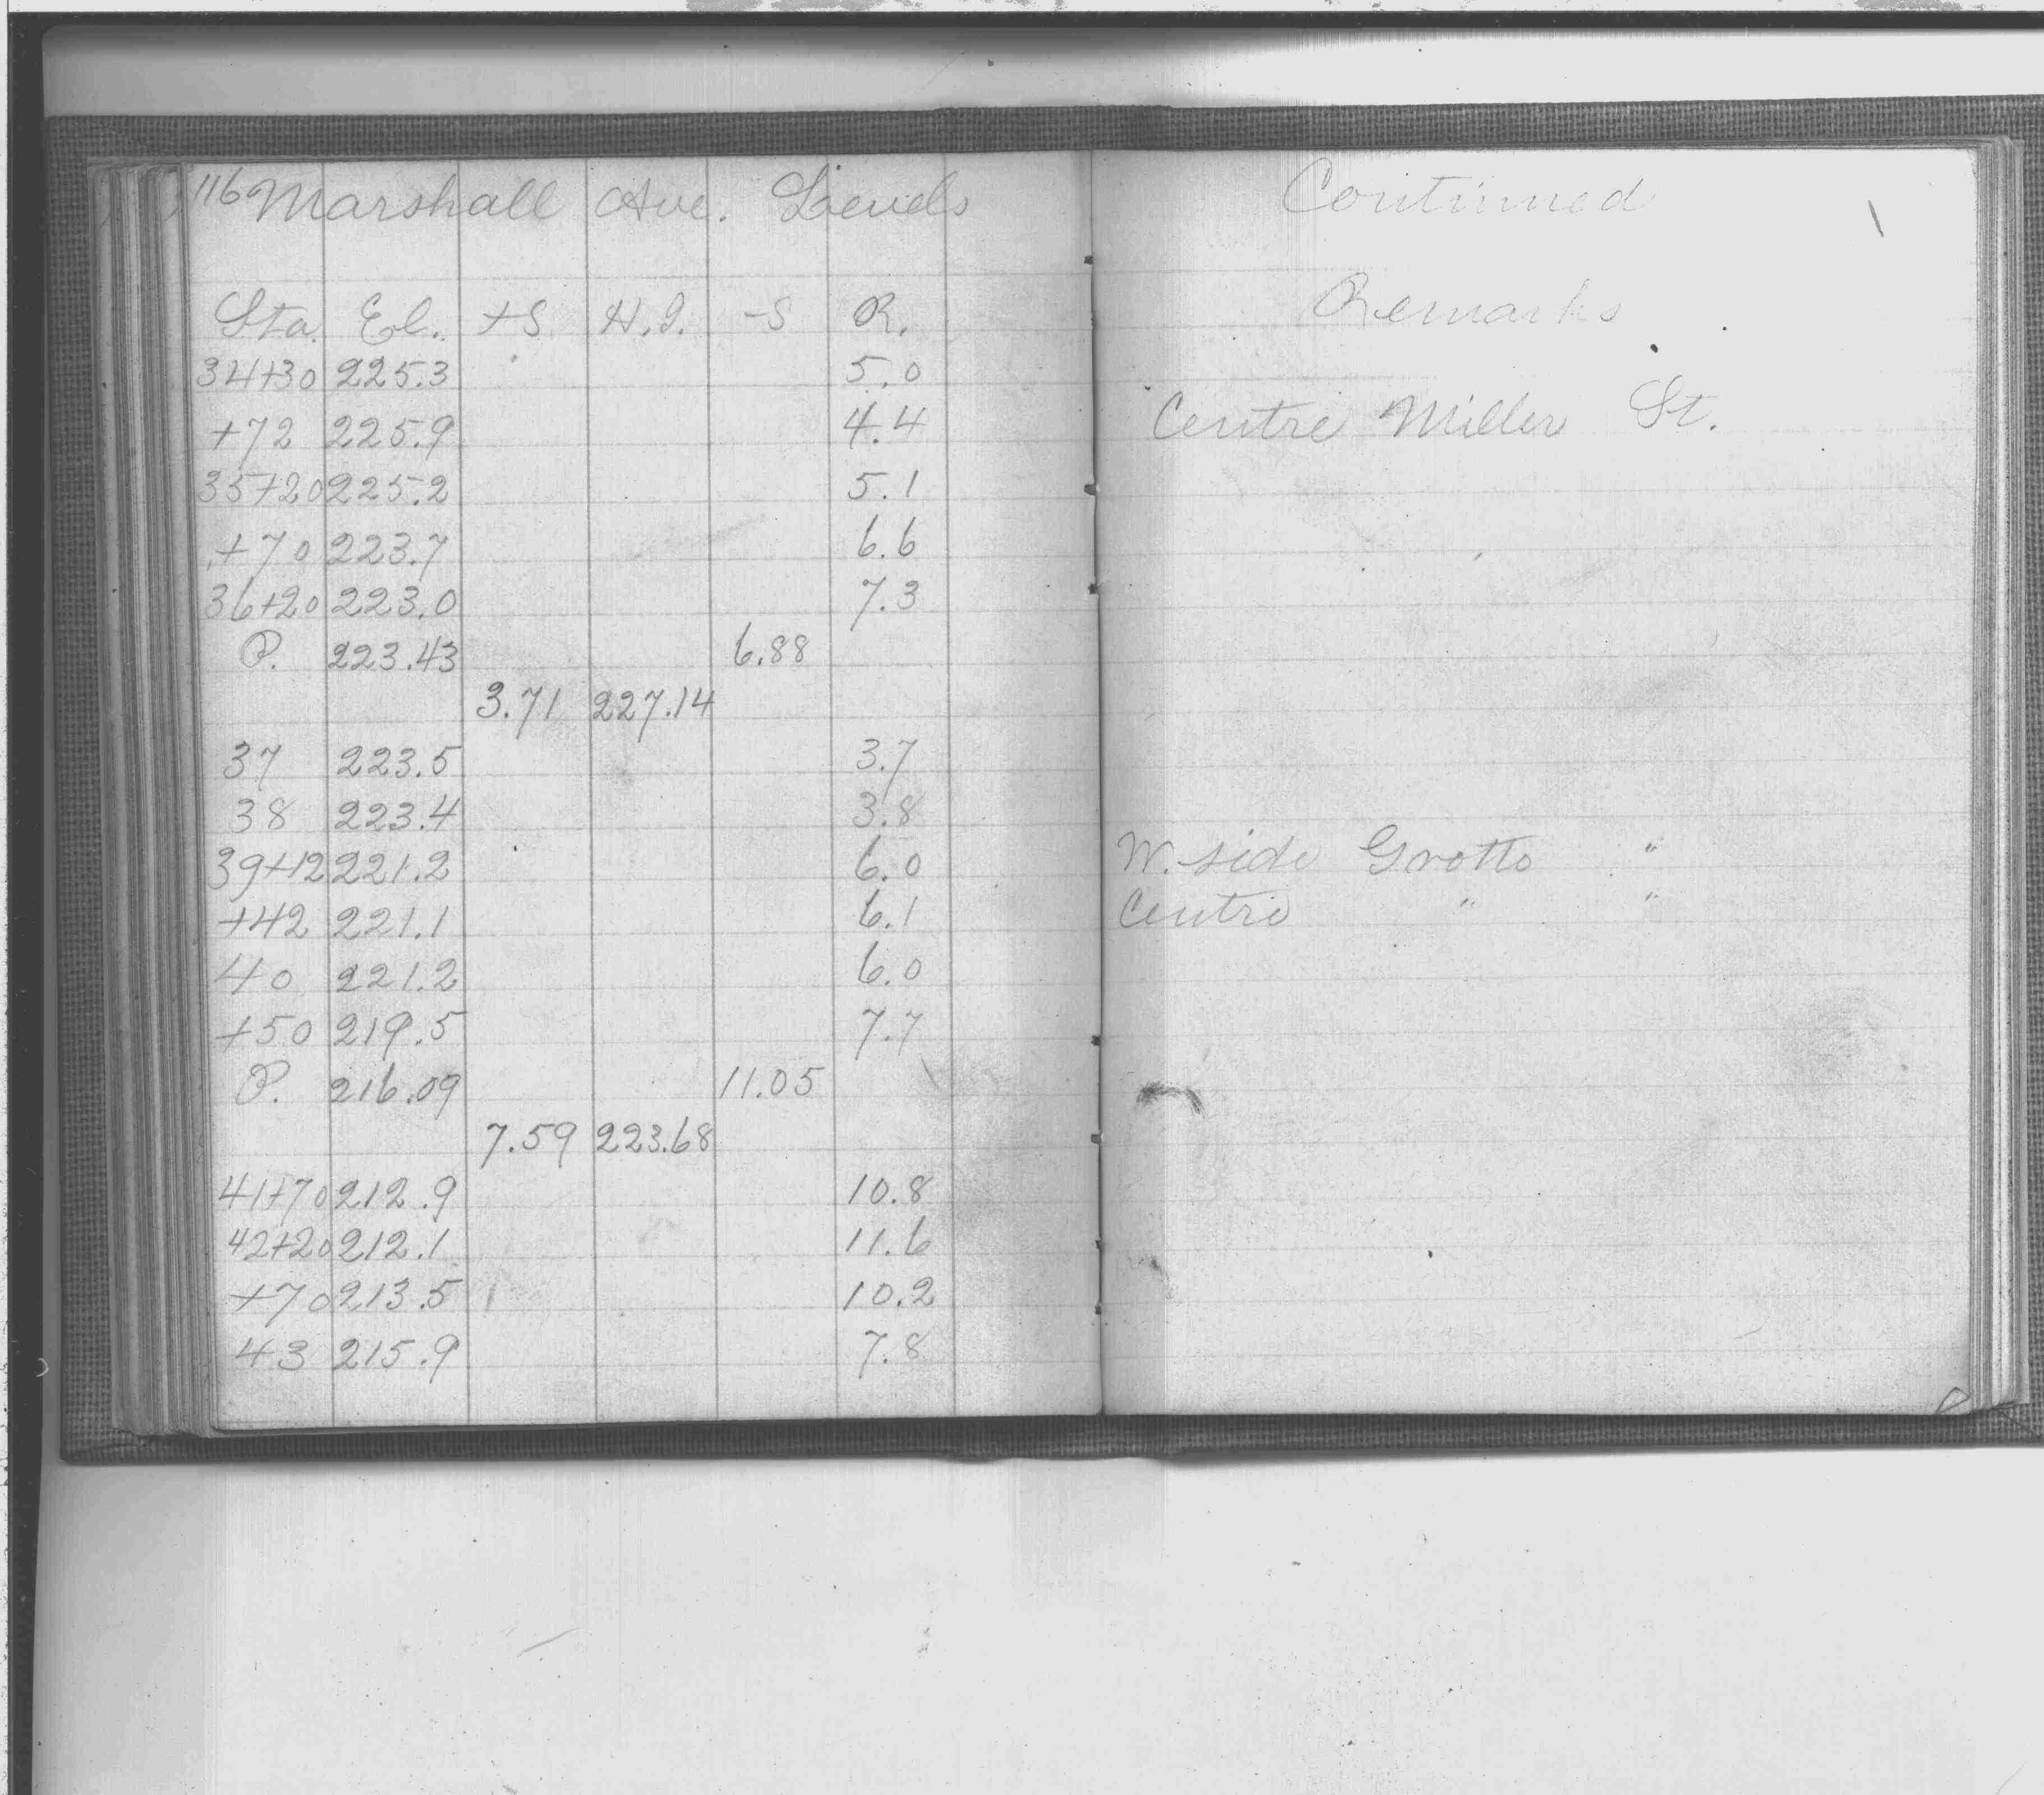 116 Marshall Ave. Levels Continued
Sta. El. +S. H.I. -S R. Remarks
34+30 225.3 5.0
+72 225.9 4.4 Centre Miller St.
35+20 225.2 5.1
+70 223.7 6.6
36+20 223.0 7.3
P. 223.43 6.88
3.71 227.14
37 223.5 3.7
38 223.4 3.8
39+12 221.2 6.0 W. side Grotto "
+42 221.1 6.1 Centre " "
40 221.2 6.0
+50 219.5 7.7
P. 216.09 11.05
7.59 223.68
41+70 212.9 10.8
42+20 212.1 11.6
+70 213.5 10.2
43 215.9 7.8